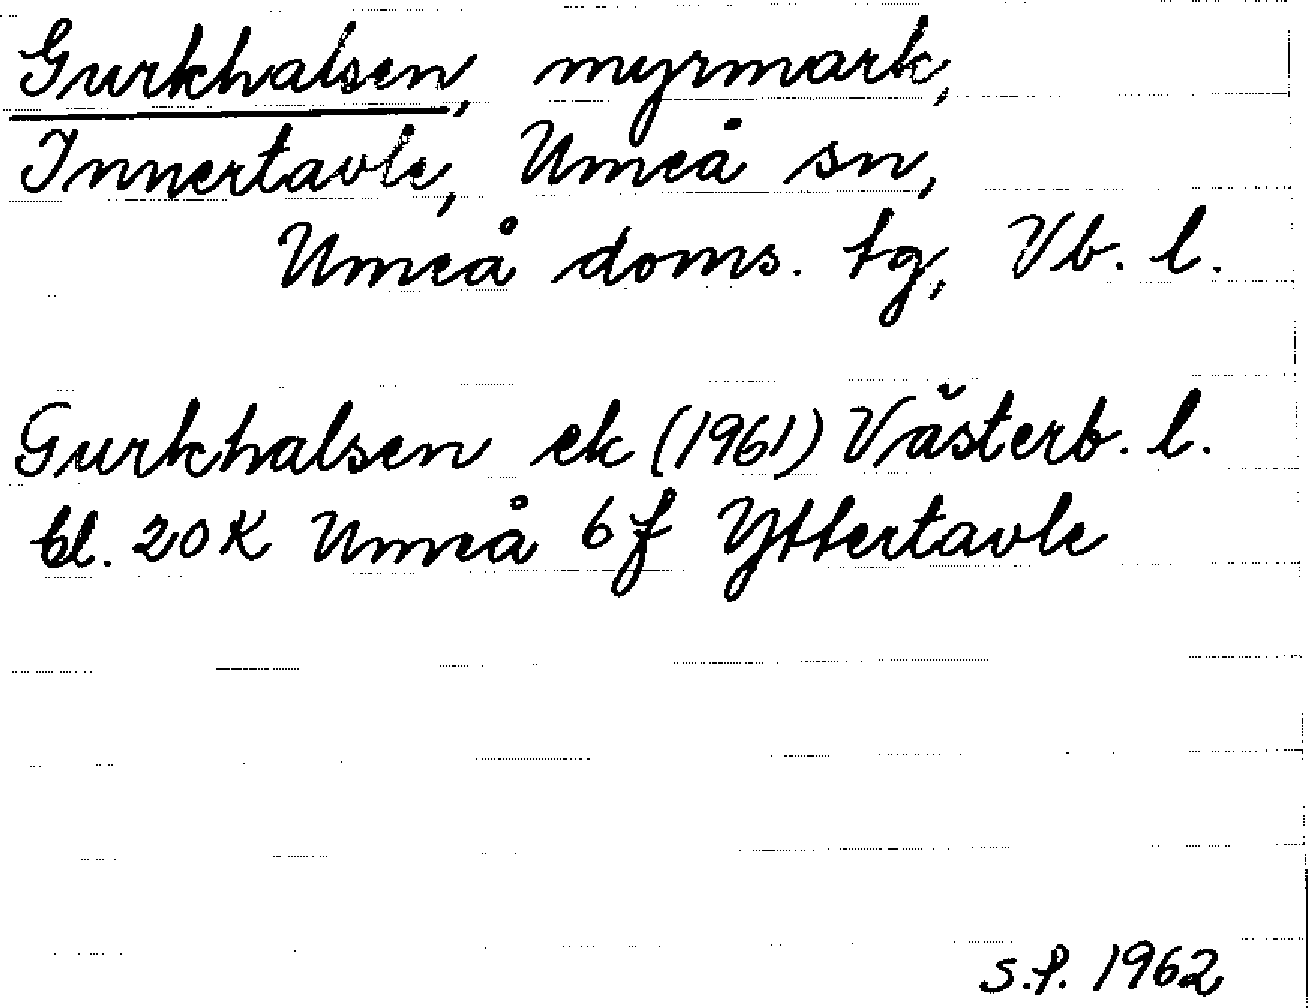 Gurkhalsen, myrmark,
Innertavle, Umeå sn,
Umeå doms. tg, Vb. l.
Gurkhalsen ek (1961) Västerb. l.
bl. 20 K Umeå 6 f Yttertavle
S.f. 1962